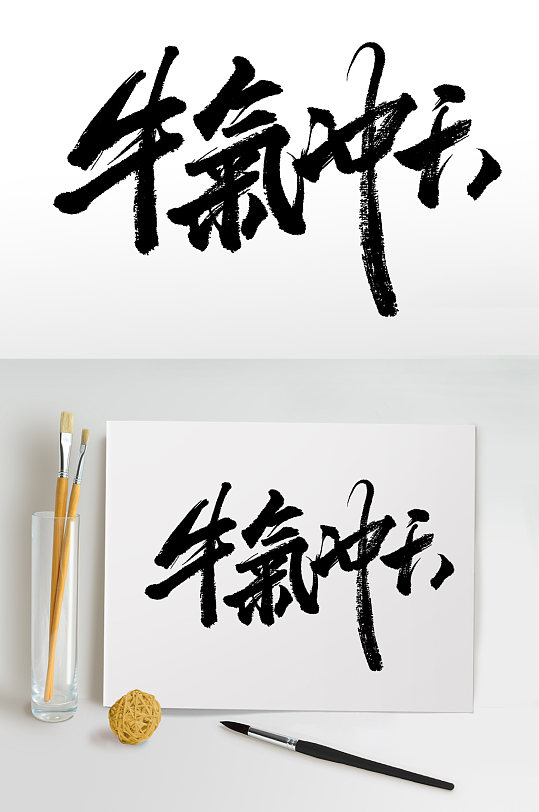 牛氣冲天
牛氣冲天